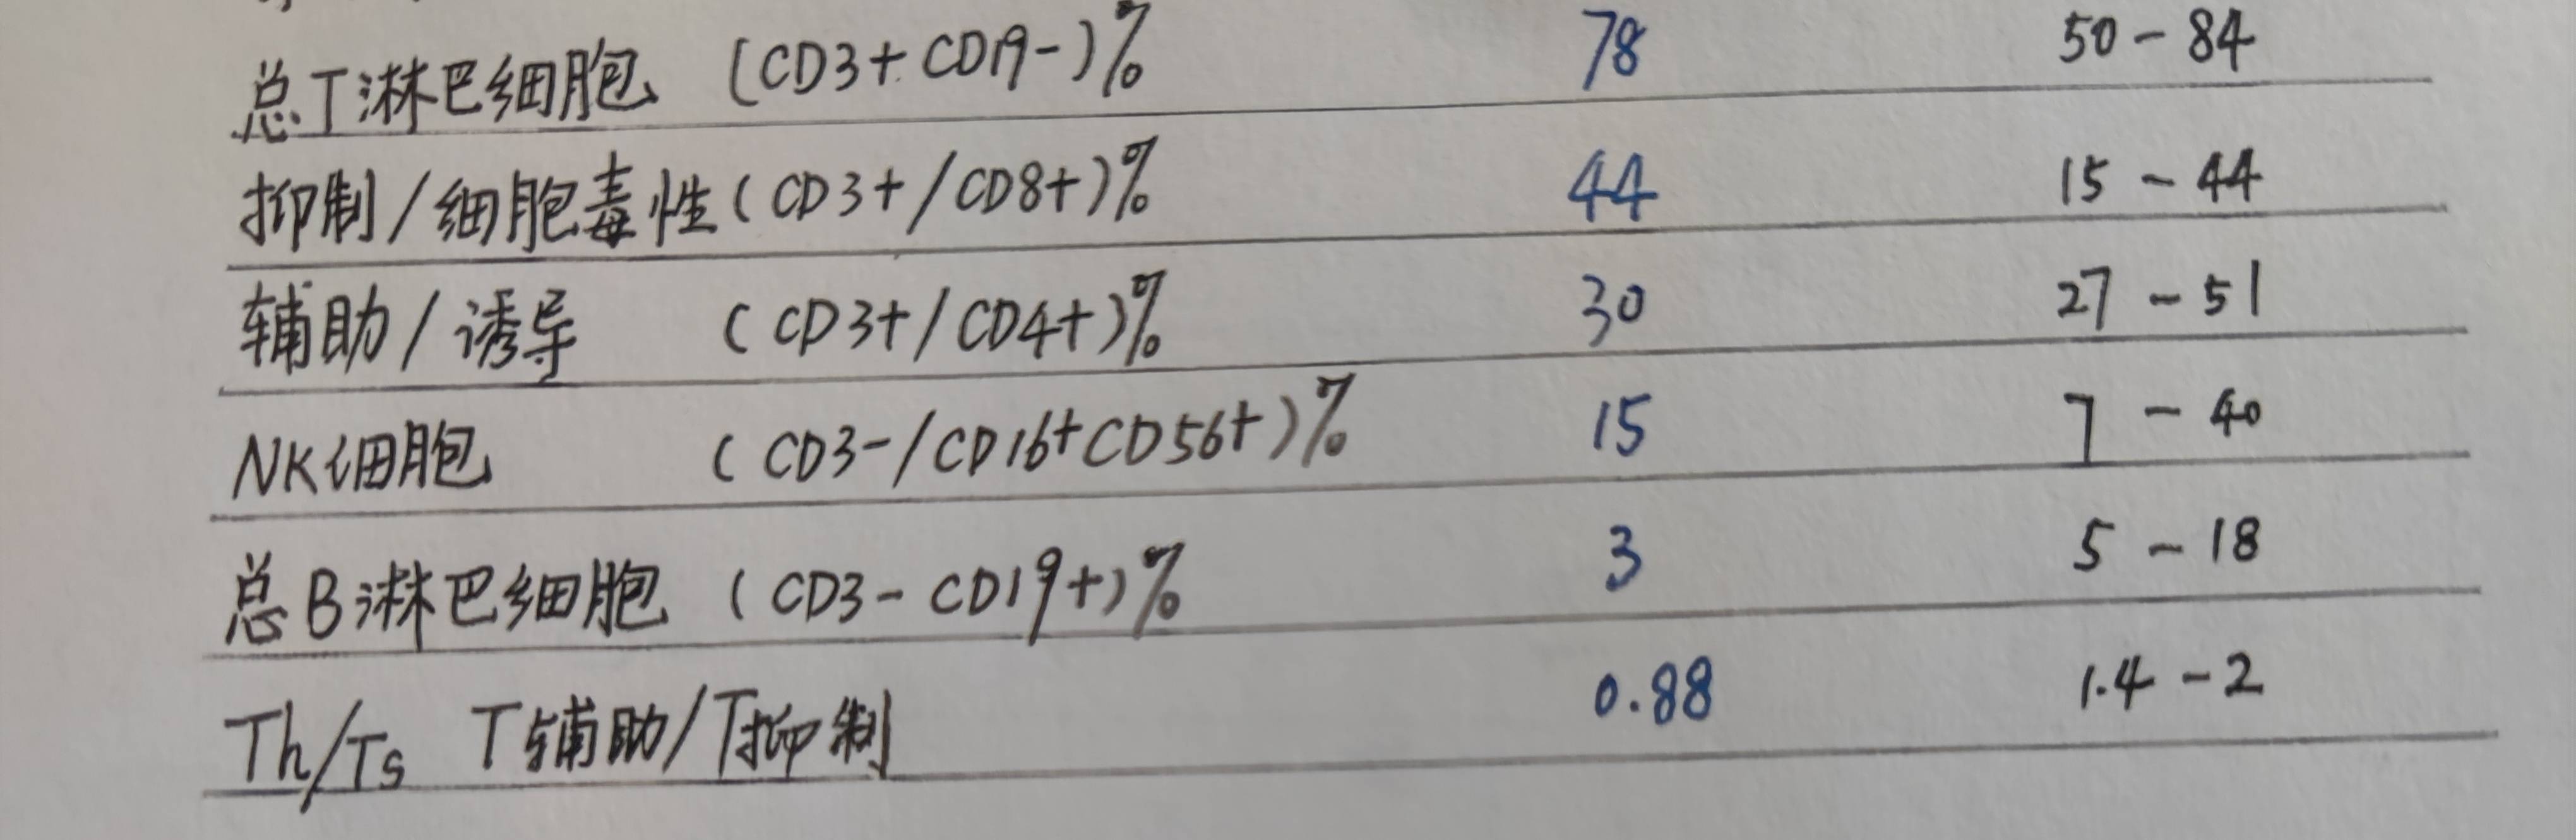 总T淋巴细胞 (CD3+CD19-)% 78 50-84
抑制/细胞毒性(CD3+/CD8+)% 44 15-44
辅助/诱导 (CD3+/CD4+)% 30 27-51
NK细胞 (CD3-/CD16+CD56+)% 15 7-40
总B淋巴细胞 (CD3-CD19+)% 3 5-18
Th/Ts T辅助/T抑制 0.88 1.4-2